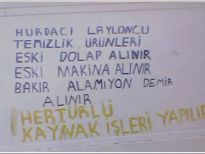 HURDACI LAYLONCU
TEMİZLİK ÜRÜNLERİ
ESKİ DOLAP ALINIR
ESKİ MAKİNA ALINIR
BAKIR ALAMIYON DEMİR
ALINIR
HERTÜRLÜ
KAYNAK İŞLERİ YAPILIR